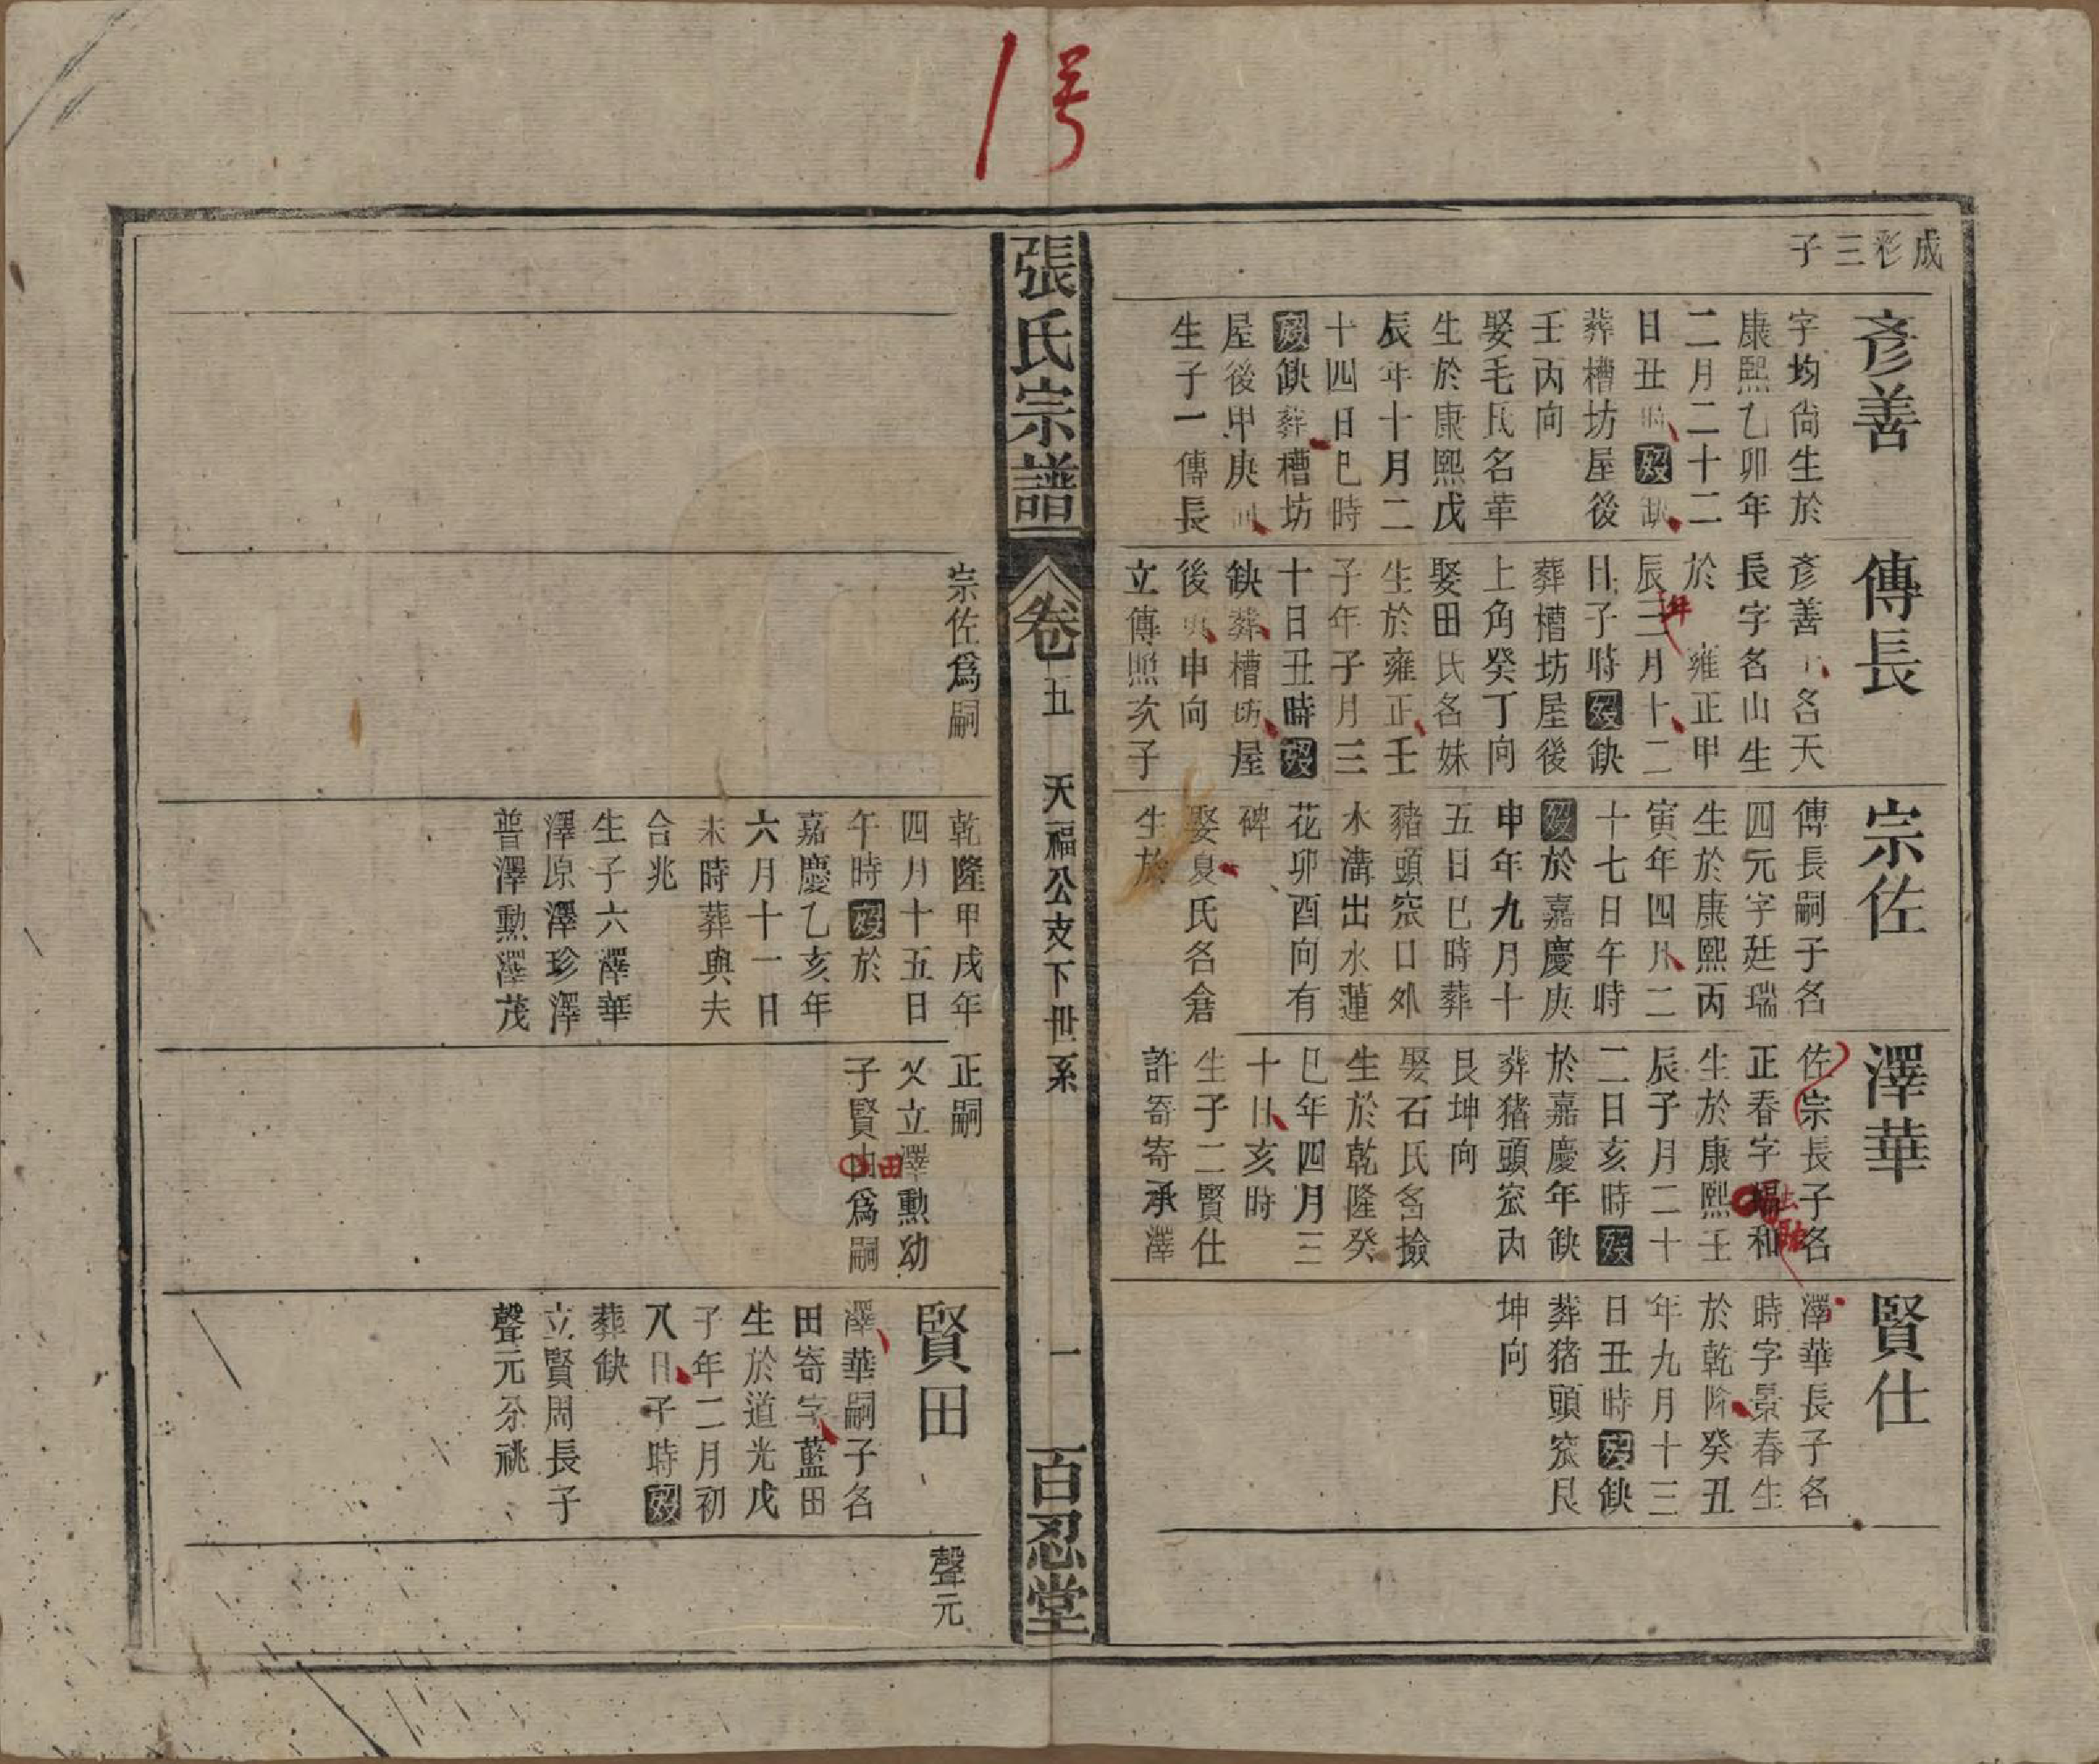 1号
成彩三子
彥善
字均尙生於
康熙乙卯年
二月二十二
日丑時歿缺
葬槽坊屋後
壬丙向
娶毛氏名華
生於康熙戊
辰年十月二
十四日巳時
歿缺葬槽坊
屋後甲庚向
生子一傳長
傳長
彥善子名天
長字名山生
於　雍正甲
辰年三月十二
日子時歿缺
葬槽坊屋後
上角癸丁向
娶田氏名妹
生於雍正壬
子年子月三
十日丑時歿
缺葬槽坊屋
後寅申向
立傳照次子
宗佐
傳長嗣子名
四元字廷瑞
生於康熙丙
寅年四月二
十七日午時
歿於嘉慶庚
申年九月十
五日巳時葬
豬頭窊口外
水溝出水蓮
花卯酉向有
碑
娶夏氏名倉
生於
澤華
佐宗長子名
正春字和
生於康熙壬
辰子月二十
二日亥時歿
於嘉慶年缺
葬猪頭窊內
艮坤向
娶石氏名撿
生於乾隆癸
巳年四月三
十日亥時
生子二賢仕
許寄寄承澤
賢仕
澤華長子名
時字景春生
於乾隆癸丑
年九月十三
日丑時歿缺
葬猪頭窊艮
坤向
張氏宗譜
卷五　天福公支下世系　一
百忍堂
宗佐爲嗣
乾隆甲戌年
四月十五日
午時歿於
嘉慶乙亥年
六月十一日
未時葬與夫
合兆
生子六澤華
澤原澤珍澤
普澤勳澤茂
正嗣
父立澤勳幼
子賢田爲嗣
賢田
澤華嗣子名
田寄字藍田
生於道光戊
子年二月初
八日子時歿
葬缺
立賢周長子
聲元承祧
聲元